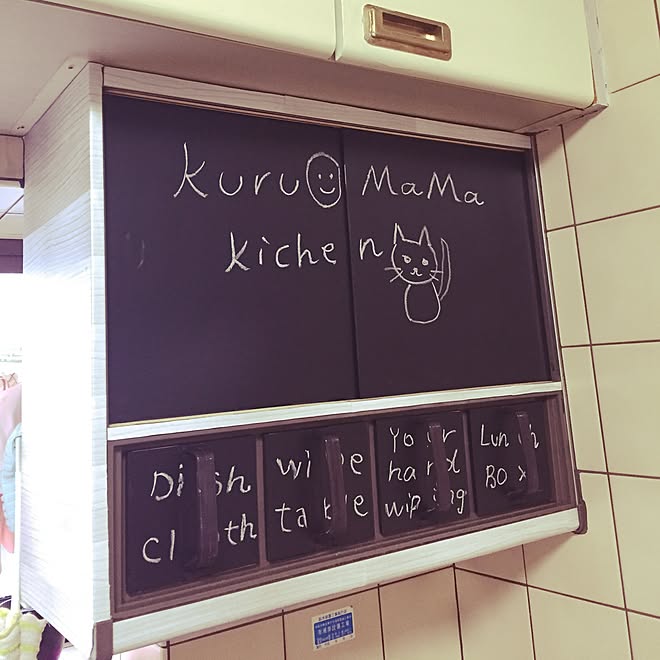 kuru MaMa
kichen
Dish
cloth
wipe
table
Your
hand
wiping
Lunch
BOX